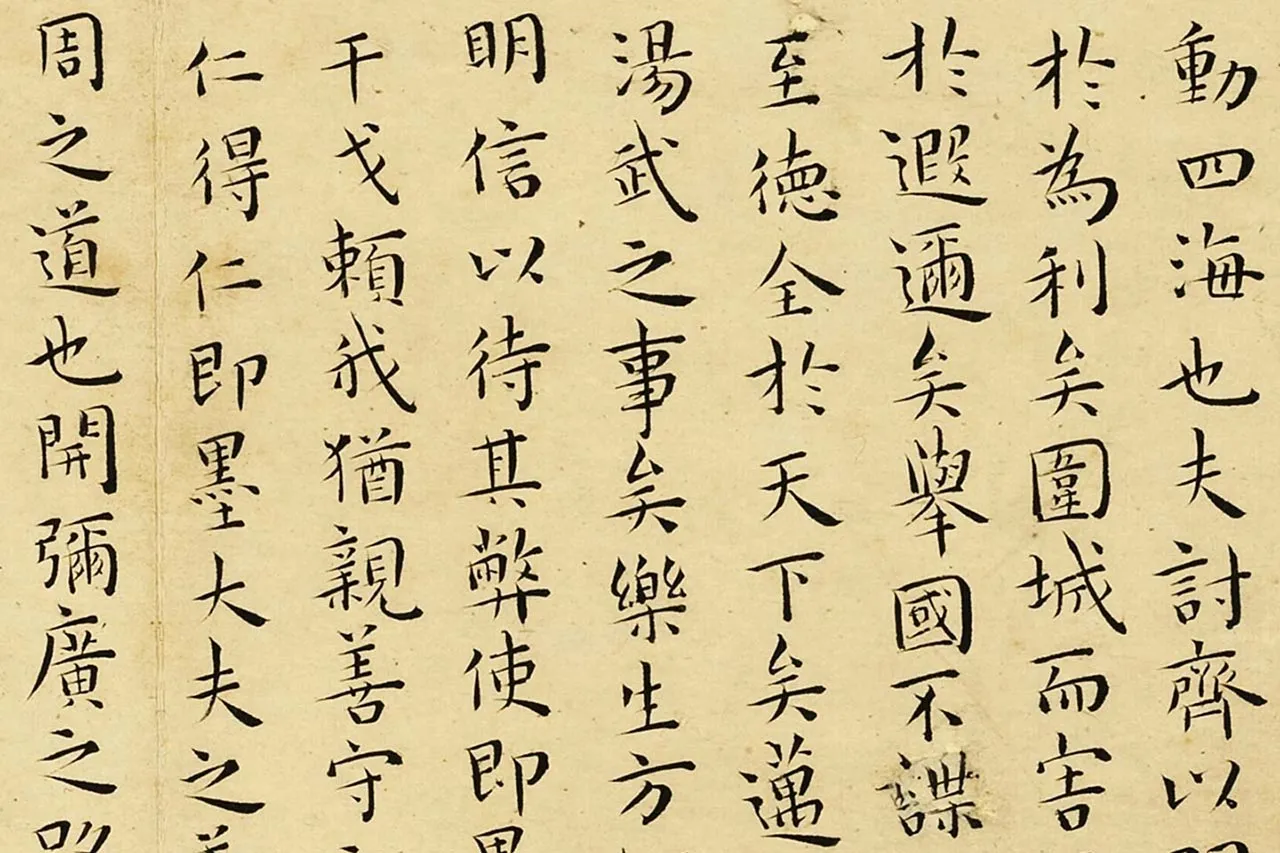 動四海也夫討齊以
於為利矣圍城而害
於遐邇矣舉國不謀
至德全於天下矣邁
湯武之事矣樂生方
明信以待其弊使即
干戈賴我猶親善守
仁得仁即墨大夫之
周之道也開彌廣之